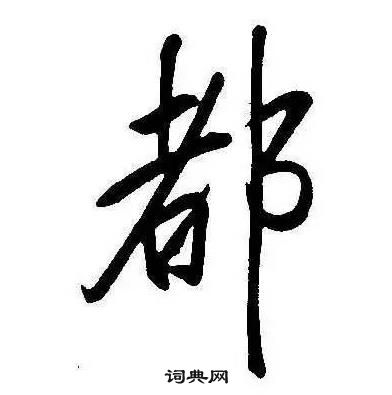 都
词典网